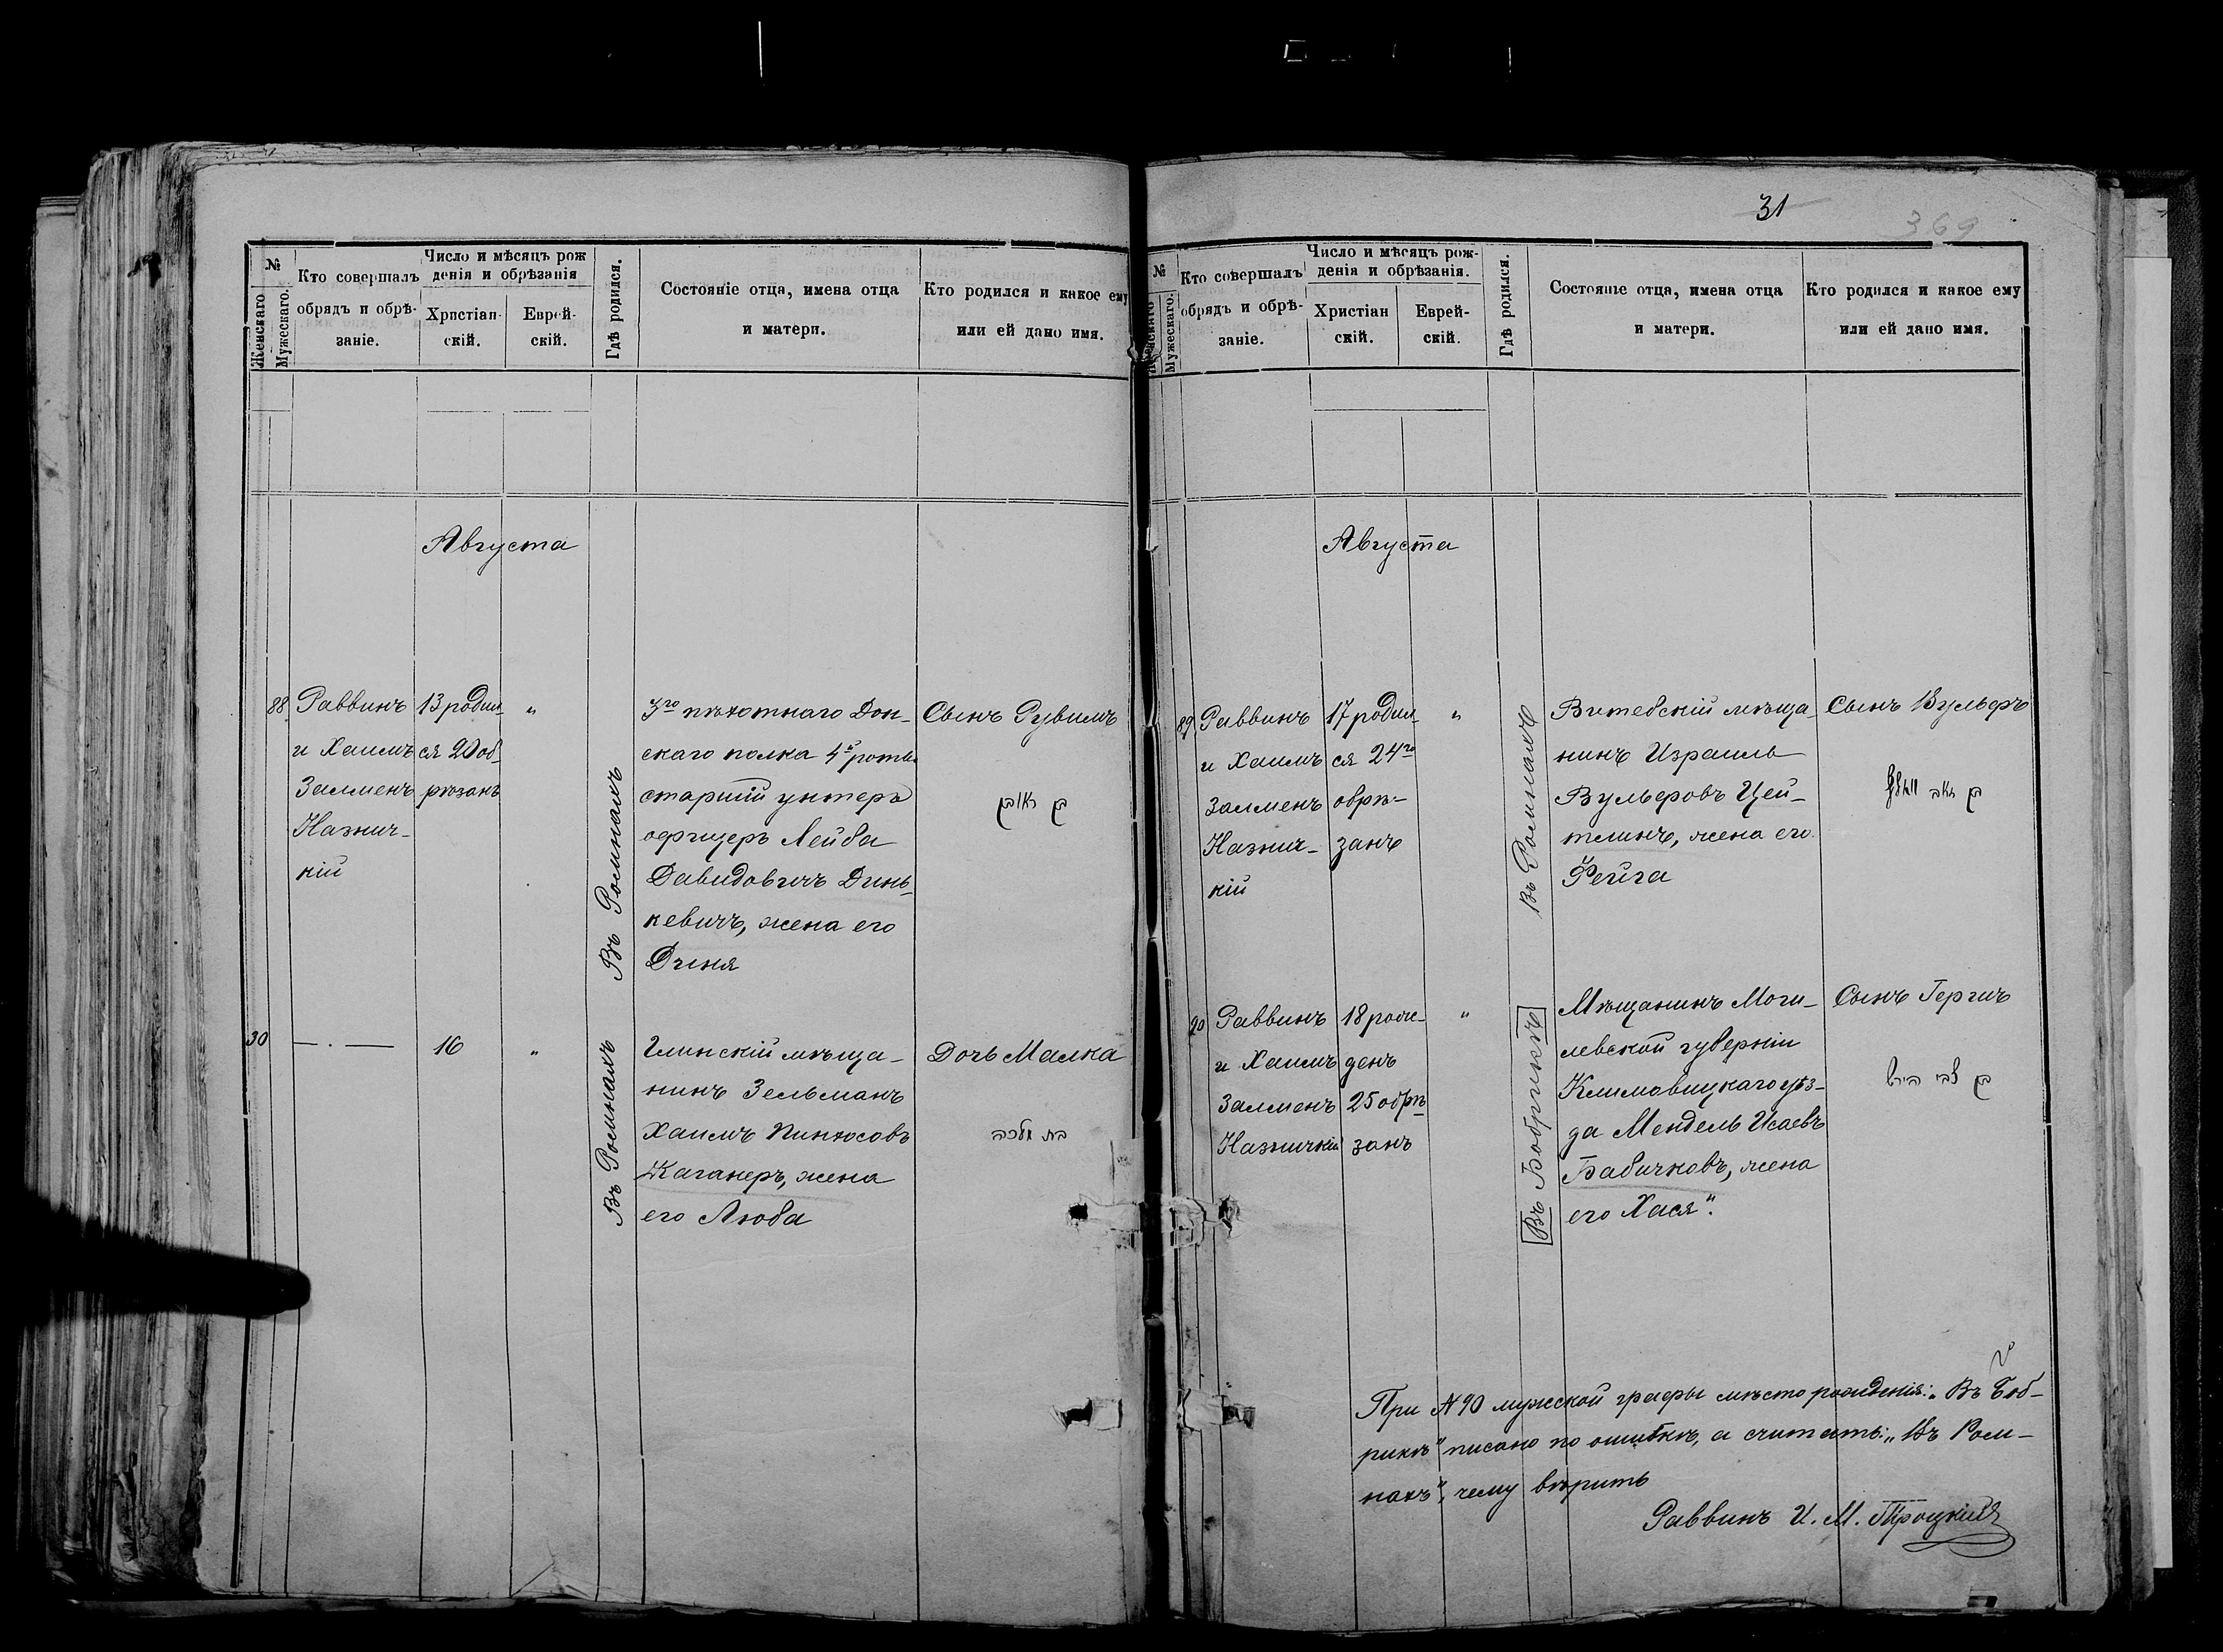 31
369
№
Женскаго
Мужескаго.
Кто совершалъ
обрядъ и обрѣ-
заніе.
Число и мѣсяцъ рож
денія и обрѣзанія
Христіан-
скій.
Еврей-
скій.
Гдѣ родился.
Состояніе отца, имена отца
и матери.
Кто родился и какое ему
или ей дано имя.
Августа
88
Раввинъ
и Хаимъ
Залменъ
Назнич-
кій
13 родил-
ся 20 об-
рѣзанъ
"
Въ Ромнахъ
3го пѣхотнаго Дон-
скаго полка 4й роты
старшій унтеръ
офицеръ Лейба
Давидовичъ Динь-
кевичъ, жена его
Диня
Сынъ Рувимъ
בן ראובן
30
— . —
16
"
Въ Ромнахъ
Глинскій мѣща-
нинъ Зельманъ
Хаимъ Пинхосовъ
Каганеръ, жена
его Люба
Дочь Малка
בת מלכה
№
Женскаго
Мужескаго.
Кто совершалъ
обрядъ и обрѣ-
заніе.
Число и мѣсяцъ рож-
денія и обрѣзанія.
Христіан
скій.
Еврей-
скій.
Гдѣ родился.
Состояніе отца, имена отца
и матери.
Кто родился и какое ему
или ей дано имя.
Августа
89
Раввинъ
и Хаимъ
Залменъ
Назнич-
кій
17 родил-
ся 24го
обрѣ-
занъ
"
Въ Ромнахъ
Витебскій мѣща-
нинъ Израиль
Вульфовъ Цей-
тлинъ, жена его
Фейга
Сынъ Вульфъ
בן זאב וואלף
90
Раввинъ
и Хаимъ
Залменъ
Назничкій
18 рож-
денъ
25 обрѣ-
занъ
"
Въ Бобрикѣ
Мѣщанинъ Моги-
левской губерніи
Климовицкаго уѣз-
да Мендель Исаевъ
Бабичковъ, жена
его Хася".
Сынъ Герцъ
בן צבי הירש
При №90 мужской графы мѣсто рожденія: „Въ Боб-
рикѣ" писано по ошибкѣ, а считать: „Въ Ром-
нахъ", чему вѣрить
Раввинъ И. М. Троцкій